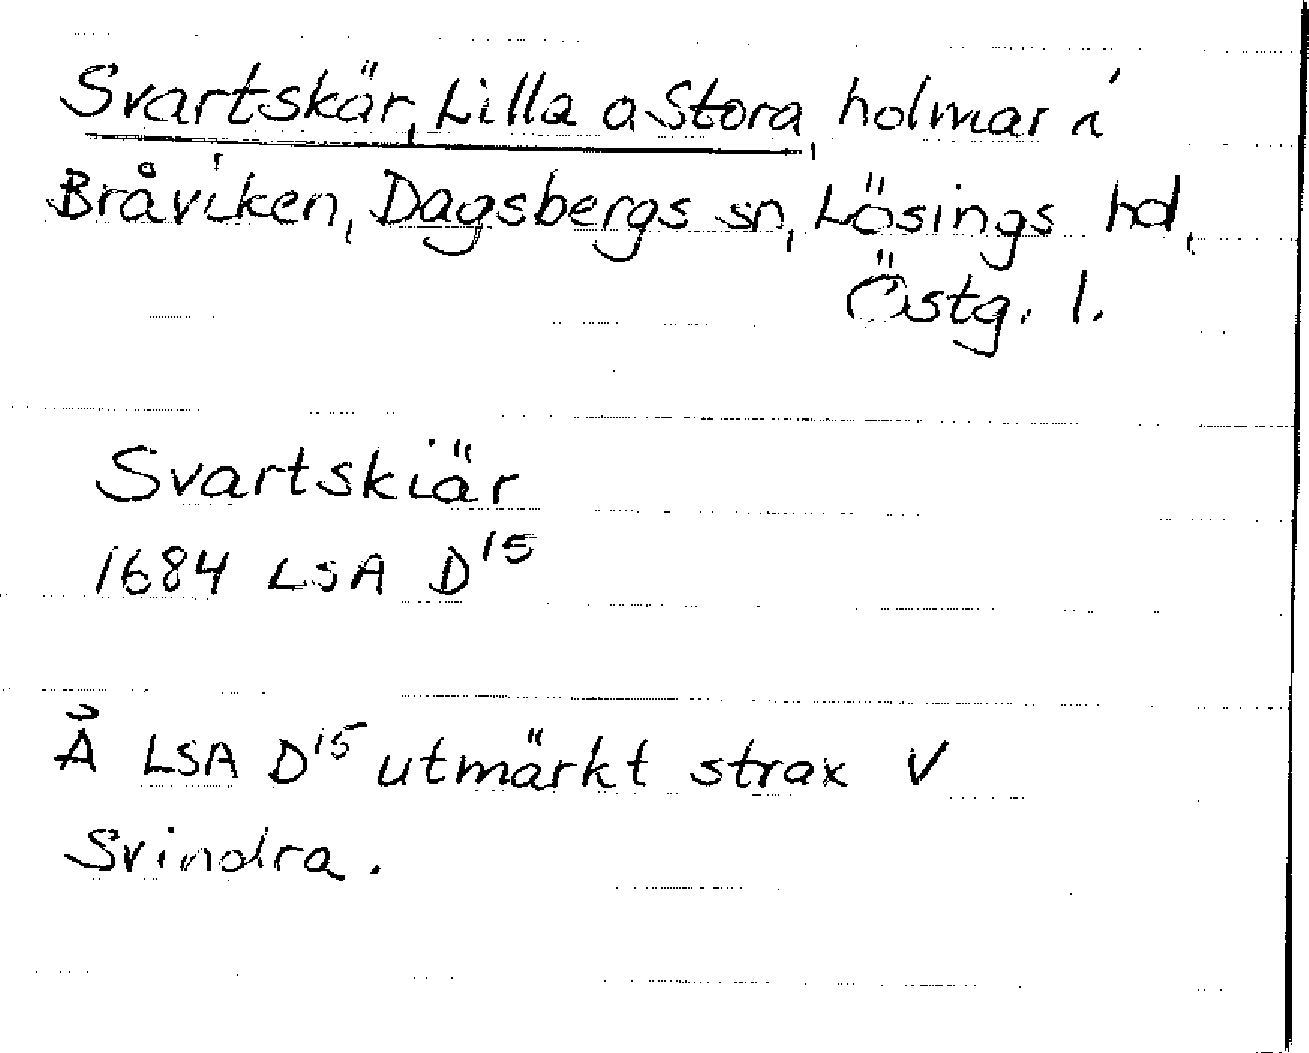 Svartskär, Lilla o Stora, holmar i
Bråviken, Dagsbergs sn, Lösings hd,
Östg. l.
Svartskiär
1684 LSA D15
Å LSA D15 utmärkt strax V
Svindra.